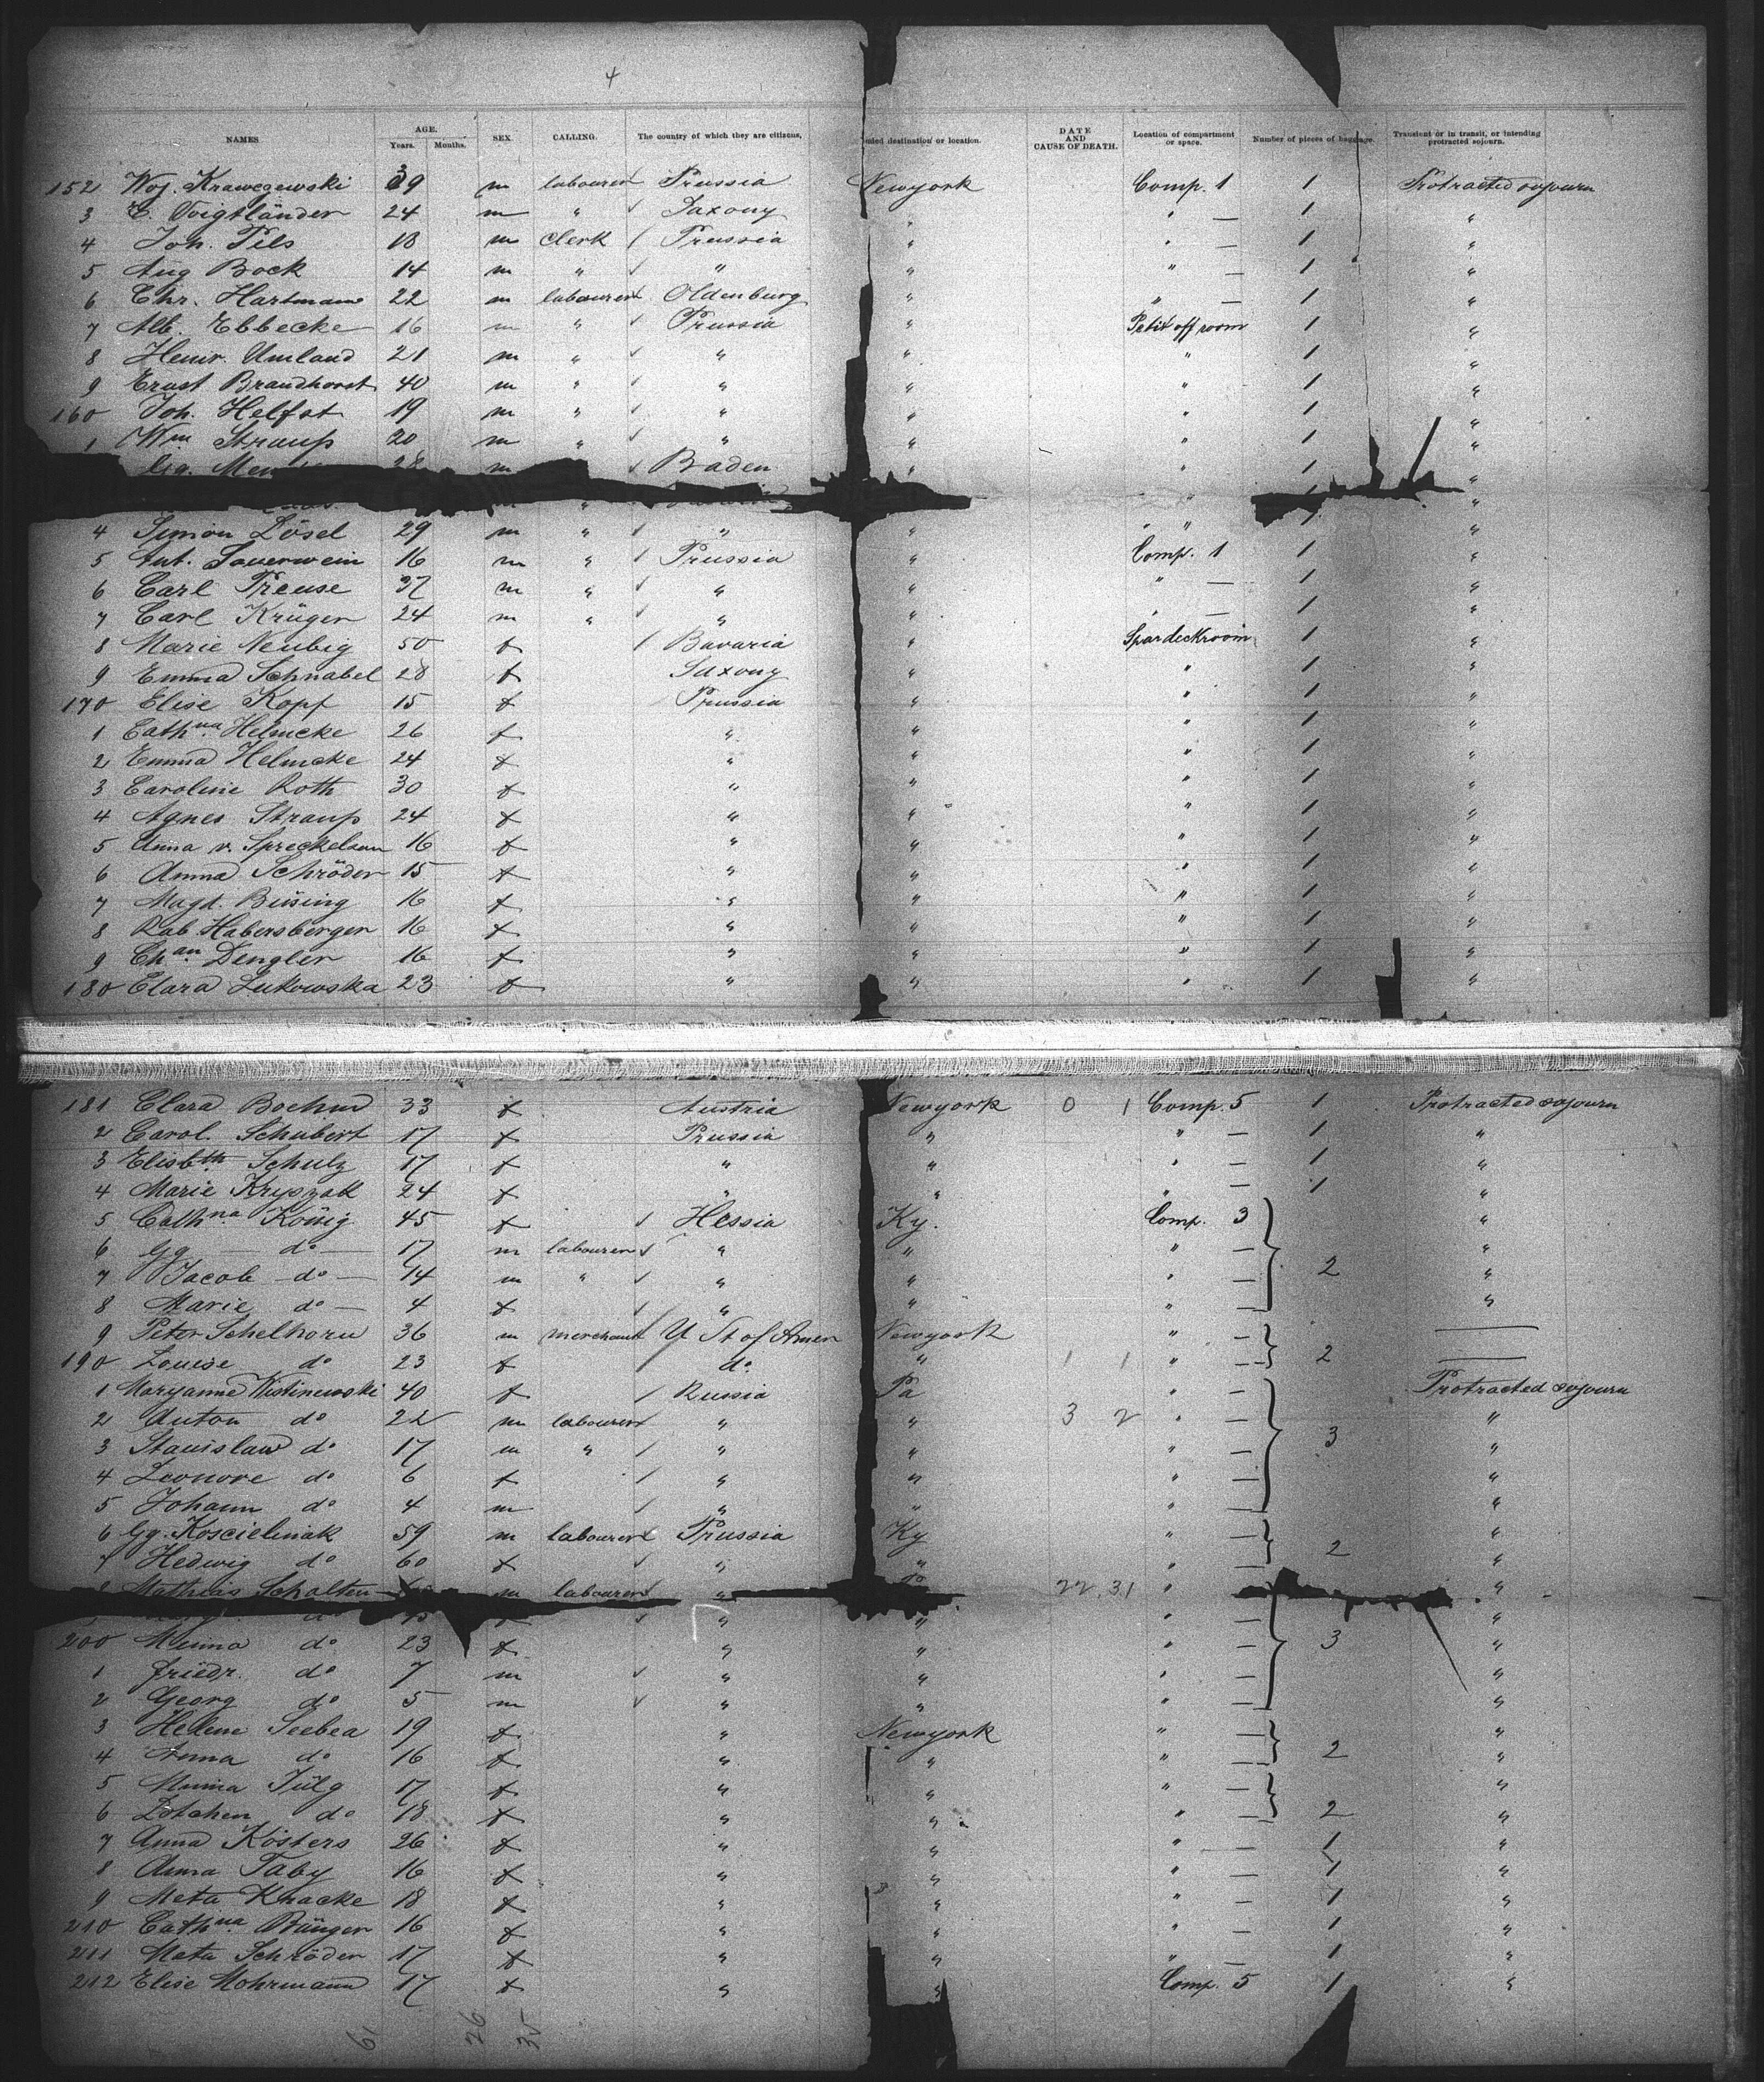 4
NAMES AGE. Years. Months. SEX. CALLING. The country of which they are citizens, nded destination or location. DATE AND CAUSE OF DEATH. Location of compartment or space. Number of pieces of baggage. Transient or in transit, or intending protracted sojourn.
152 Woj. Krawczewski 39 m labourer Prussia Newyork Comp. 1 1 Protracted sojourn
3 E. Voigtländer 24 m " Saxony " " — 1 "
4 Joh. Pils 18 m clerk Prussia " " — 1 "
5 Aug Bock 14 m " " " " — 1 "
6 Chr. Hartmann 22 m labourer Oldenburg " " — 1 "
7 Alb. Ebbecke 16 m " Prussia " Petit off room 1 "
8 Heinr. Umland 21 m " " " " 1 "
9 Ernst Brandhorst 40 m " " " " 1 "
160 Joh. Helfst 19 m " " " " 1 "
1 Wm Straup 20 m " " " " 1 "
Gg. 28 m Baden " " 1 "
4 Simon Lösel 29 m " " " " 1 "
5 Ant. Sauerwein 16 m " Prussia " Comp. 1 1 "
6 Carl Preuse 37 m " " " " — 1 "
7 Carl Krüger 24 m " " " " — 1 "
8 Marie Neubig 50 f Bavaria " Spardeckroom 1 "
9 Emma Schnabel 28 f Saxony " " 1 "
170 Elise Kopf 15 f Prussia " " 1 "
1 Cathna Helmcke 26 f " " " 1 "
2 Emma Helmcke 24 f " " " 1 "
3 Caroline Roth 30 f " " " 1 "
4 Agnes Straup 24 f " " " 1 "
5 Anna v. Spreckelsen 16 f " " " 1 "
6 Anna Schröder 15 f " " " 1 "
7 Magd. Büsing 16 f " " " 1 "
8 Bab. Habersberger 16 f " " " 1 "
9 Chan Dengler 16 f " " " 1 "
180 Clara Lukowska 23 f " " " 1 "
181 Clara Boehm 33 f Austria Newyork 0 1 Comp. 5 1 Protracted sojourn
2 Carol. Schubert 17 f Prussia " " — 1 "
3 Elisbth Schulz 17 f " " " — 1 "
4 Marie Kryszak 24 f " " " — 1 "
5 Cathna König 45 f Hessia Ky. Comp. 3 "
6 Gg — do — 17 m labourer " " " — "
7 Jacob — do — 14 m " " " " — 2 "
8 Marie do — 4 f " " " — "
9 Peter Schelhorn 36 m merchant U St of Amer Newyork " — —
190 Louise do 23 f do " 1 1 " — 2 —
1 Maryanne Wistinewski 40 f Russia Pa " — Protracted sojourn
2 Anton do 22 m labourer " " 3 2 " — "
3 Stanislaw do 17 m " " " " — 3 "
4 Leonore do 6 f " " " — "
5 Johann do 4 m " " " — "
6 Gg. Koscielniak 59 m labourer Prussia Ky " — "
7 Hedwig do 60 f " " " — 2 "
8 Mathias Scholten m labourer " 22.31 " "
do 45 f " " " — "
200 Minna do 23 f " " " — 3 "
1 Friedr. do 7 m " " " — "
2 Georg do 5 m " " " — "
3 Helene Seebea 19 f " Newyork " — "
4 Anna do 16 f " " " — 2 "
5 Minna Jülg 17 f " " " — "
6 Dotchen do 18 f " " " — 2 "
7 Anna Kösters 26 f " " " — 1 "
8 Anna Taby 16 f " " " — 1 "
9 Meta Knacke 18 f " " " — 1 "
210 Cathna Bünger 16 f " " " — 1 "
211 Meta Schröder 17 f " " " — 1 "
212 Elise Mohrmann 17 f " " Comp. 5 1 "
61 26 35